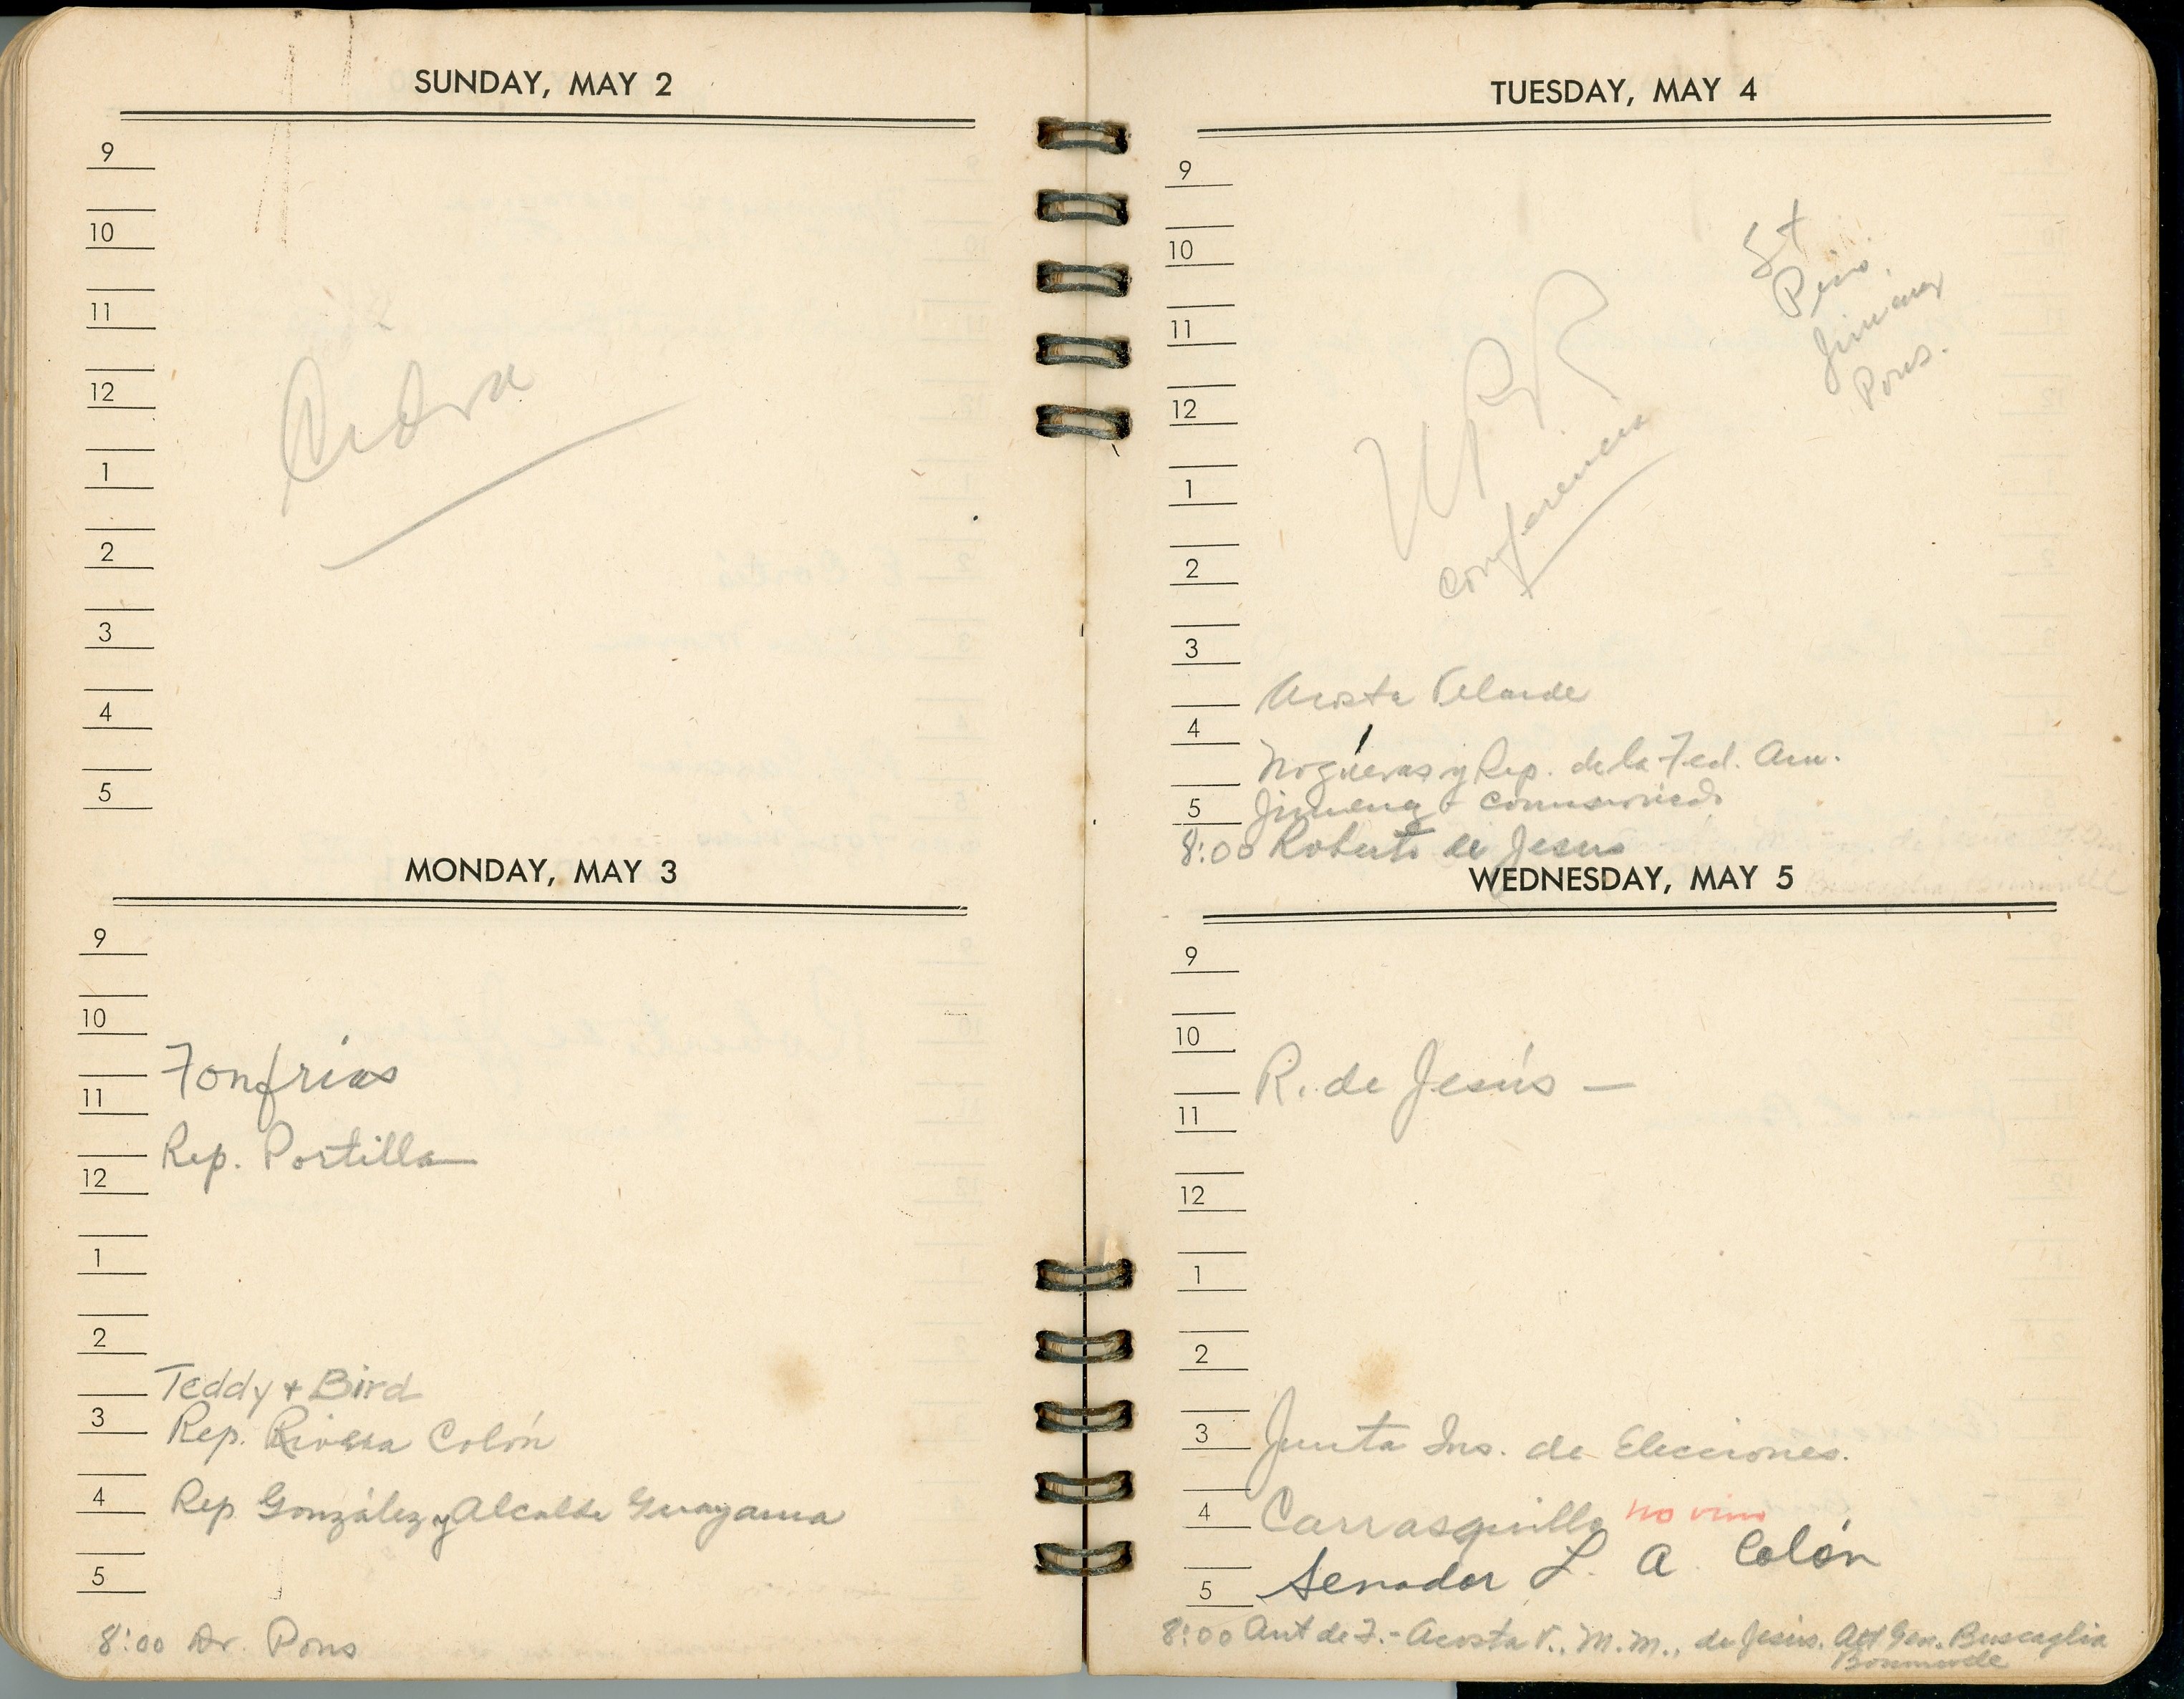 SUNDAY, MAY 2
9
10
11
12
1
2
3
4
5
Cidra
MONDAY, MAY 3
9
10
Fonfrías
11
Rep. Portilla
12
1
2
Teddy + Bird
3
Rep. Rivera Colón
4
Rep González y Alcalde Guayama
5
8:00 Dr. Pons
TUESDAY, MAY 4
9
10
St
Piño
Jiménez
Pons.
11
12
UPR
conferencia
1
2
3
Acosta Velarde
4
Nogueras y Rep. de la Fed. Am.
5 Jimenez comisionado
8:00 Roberto de Jesus
WEDNESDAY, MAY 5
9
10
R. de Jesús —
11
12
1
2
3 Junta Ins. de Elecciones.
4 Carrasquillo no vino
5 Senador L. A. Colón
8:00 Ant de F. - Acosta V., M.M., de Jesús. Att Gen. Buscaglia